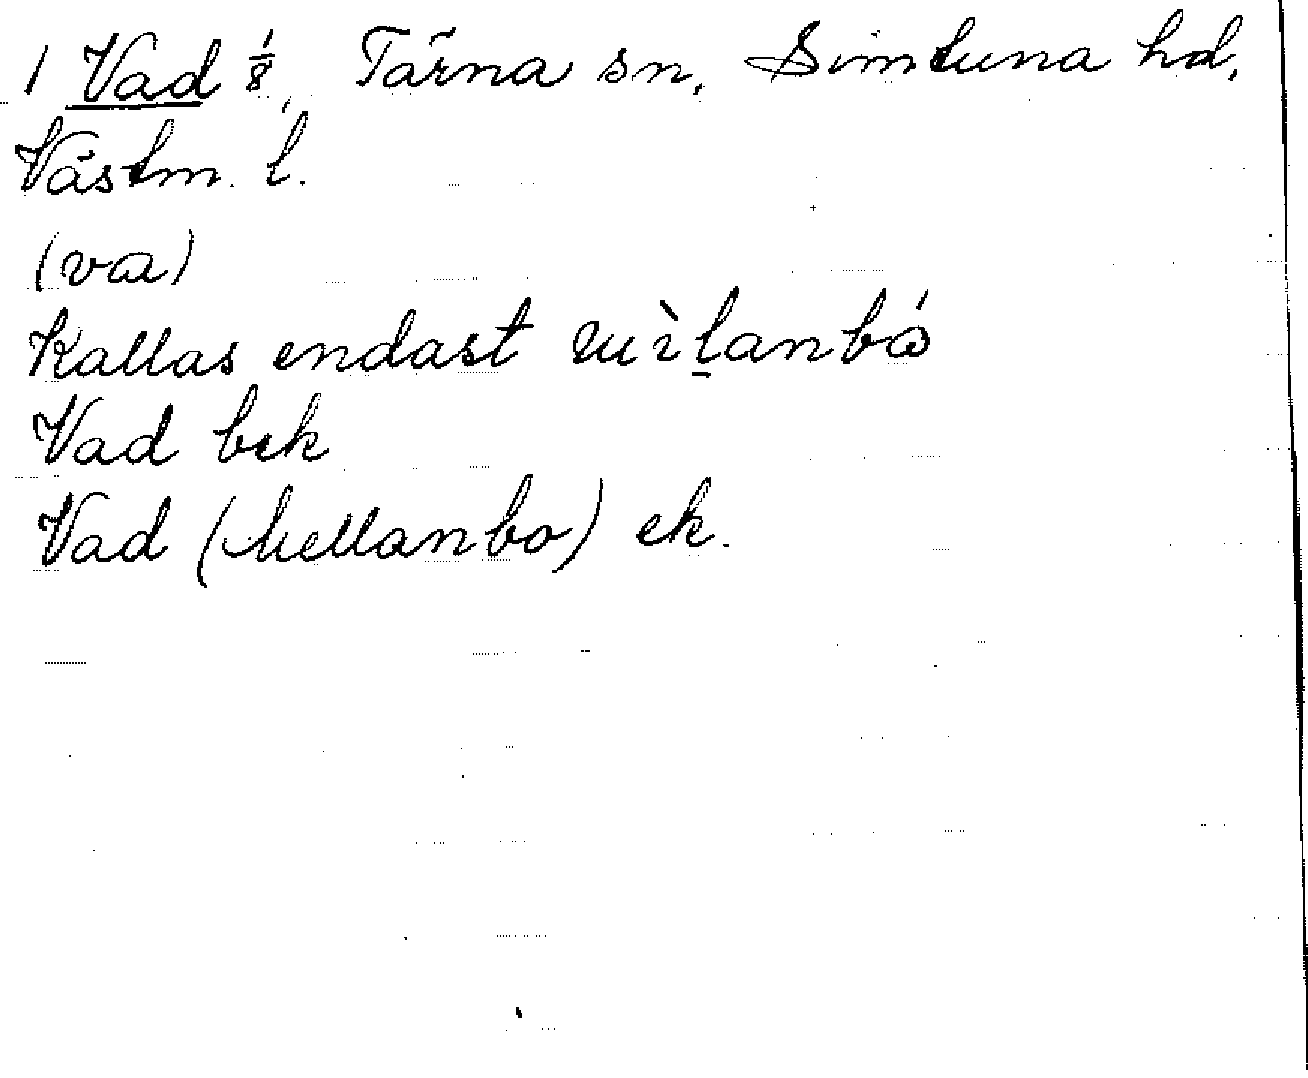 1 Vad 1/8, Tärna sn, Simtuna hd,
Västm. l.
(va)
Kallas endast
Vad bek
Vad (Mellanbo) ek.